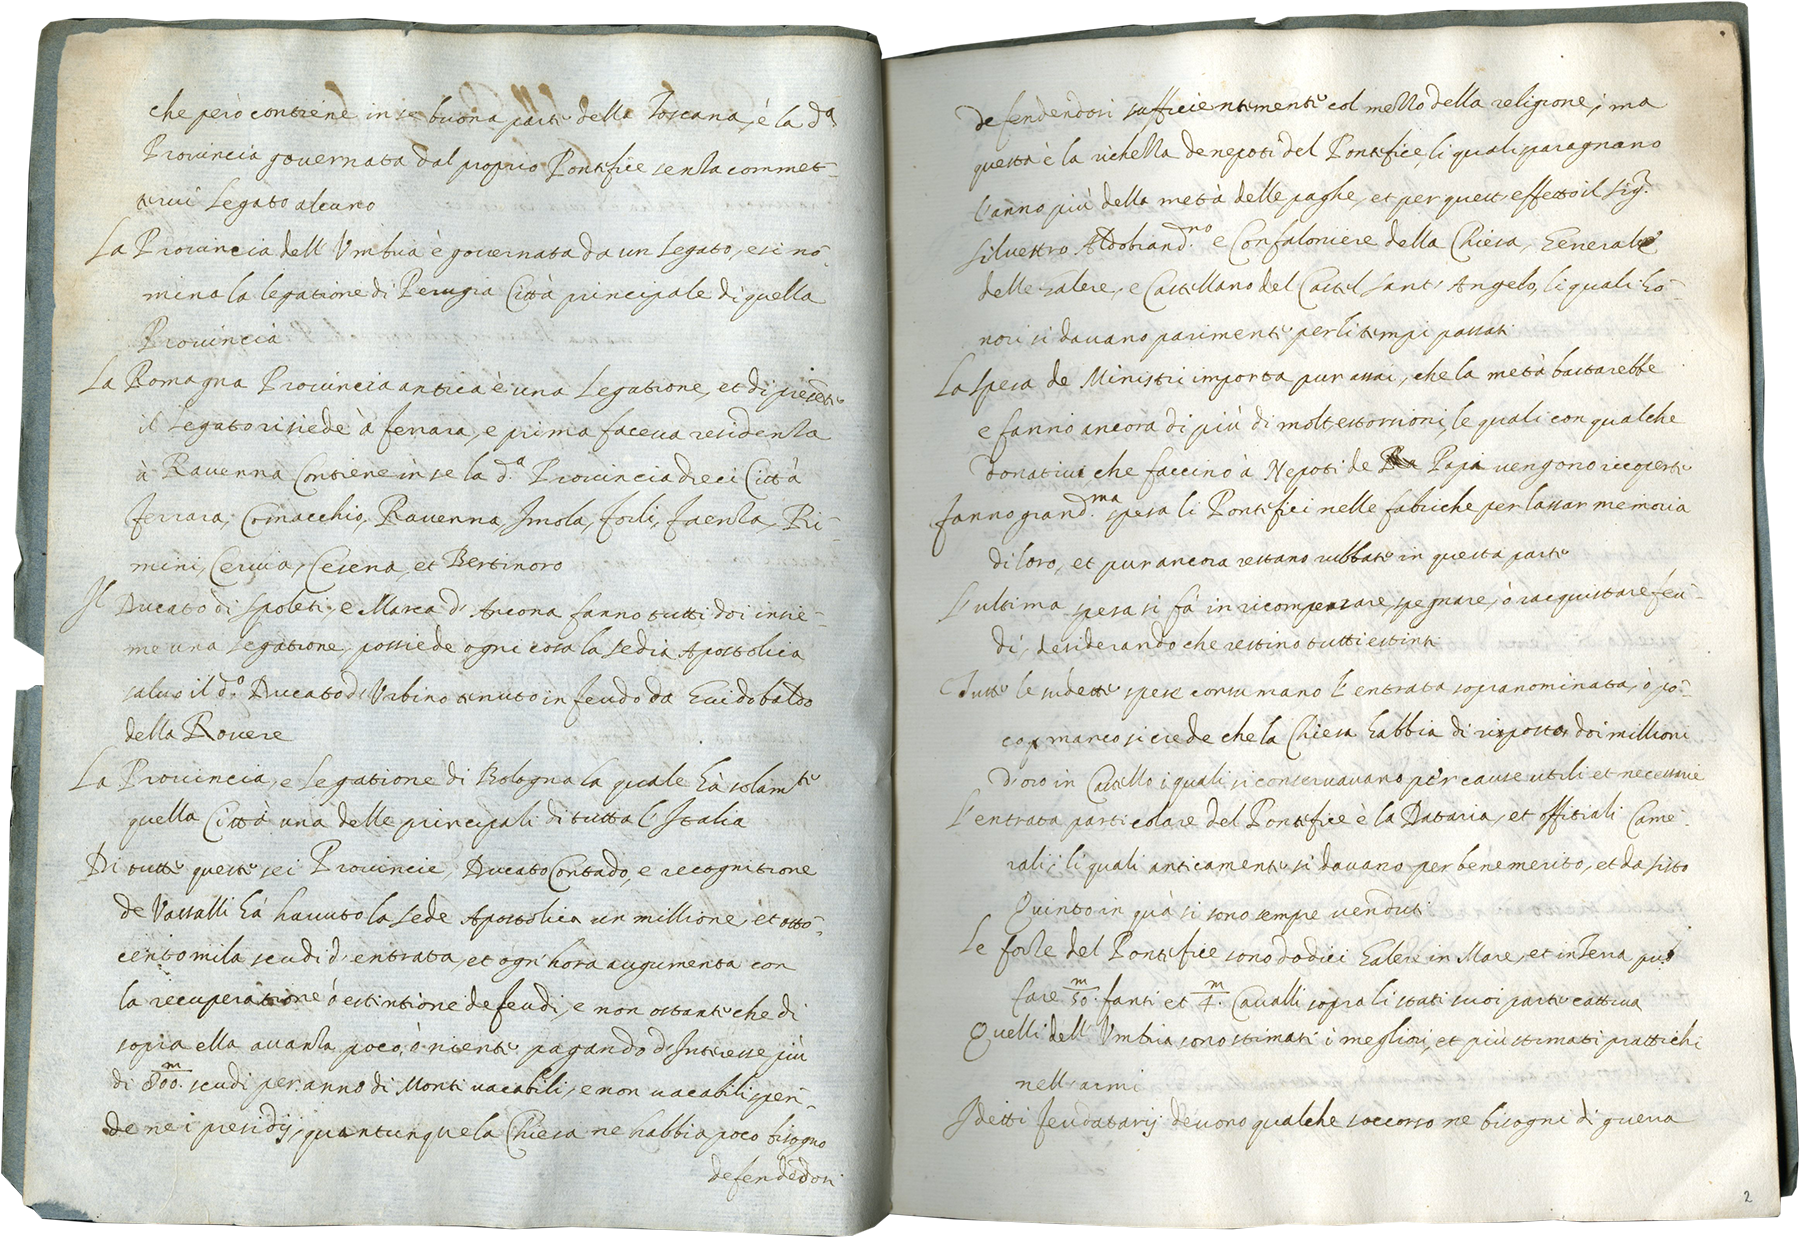 che però contiene in se buona parte della Toscana, è la d.a
Prouincia gouernata dal proprio Pontefice senza commet-
terui Legato alcuno
La Prouincia dell'Vmbria è gouernata da un Legato, e si nō-
mina la legatione di Perugia Città principale di quella
Prouincia
La Romagna Prouincia antica è una Legatione, et di presēte
il Legato risiede à Ferrara, e prima faceua residenza
à Rauenna Contiene in se la d.a Prouincia dieci Città
Ferrara, Comacchio, Rauenna, Imola, forlì, faenza, Ri-
mini, Ceruia, Cesena, et Bertinoro
Il Ducato di Spoleti, e Marca d'Ancona fanno tutti doi insie-
me una Legatione, possiede ogni cosa la Sedia Apostolica
saluo il d.o Ducato d'Vrbino tenuto in feudo da Guidobaldo
della Rouere
La Prouincia, e Legatione di Bologna la quale hà solam.te
quella Città una delle principali di tutta l'Italia
Di tutte queste sei Prouincie, Ducato Contado, e recognitione
de Vassalli hà hauuto la Sede Apostolica un millione, et otto-
cento mila scudi d'entrata, et ogn'hora augumenta con
la recuperatione ò estintione de feudi, e non ostante che di
sopra ella auanza poco, ò niente pagando d'Interesse più
di 800.m scudi per anno di Monti uacabili, e non uacabili spen-
de ne i presidij, quantunque la Chiesa ne habbia poco bisogno
defendēdosi
defendendosi sufficientemente col mezzo della religione, ma
questa è la richezza de nepoti del Pontefice, li quali sparagnano
l'anno più della metà delle paghe, et per quest'effetto il Sig.r
Siluestro Aldobrand.no è Confaloniere della Chiesa, Generale
delle galere, e Castellano del Castel Sant'Angelo, li quali hō-
nori si dauano parimente per li tempi passati
La spesa de Ministri importa pur assai, che la metà bastarebbe
e fanno ancora di più di molt'estorsioni, le quali con qualche
donatiui che faccino à Nepoti de Papi uengono ricoperte
fanno grand.ma spesa li Pontefici nelle fabriche per lassar memoria
di loro, et pur ancora restano rubbati in questa parte
L'ultima spesa si fà in ricompensare, spegnare, ò racquistare feu-
di, desiderando che restino tutti estinti
Tutte le sudette spese consumano l'entrata sopranominata, ò po-
co manco si crede che la Chiesa habbia di riposto doi millioni
d'oro in Castello i quali si conseruauano per cause utili et necessarie
L'entrata particolare del Pontefice è la Dataria, et offitiali Came-
rali, li quali anticamente si dauano per benemerito, et da Sisto
Quinto in quà si sono sempre uenduti
Le forze del Pontefice sono dodici Galere in Mare, et in Terra può
fare 50.m fanti et 4.m Caualli sopra li stati suoi parte cattiua
Quelli dell'Vmbria sono stimati i megliori, et più stimati prattichi
nell'armi
I detti feudatarij deuono qualche soccorso ne bisogni di guerra
2